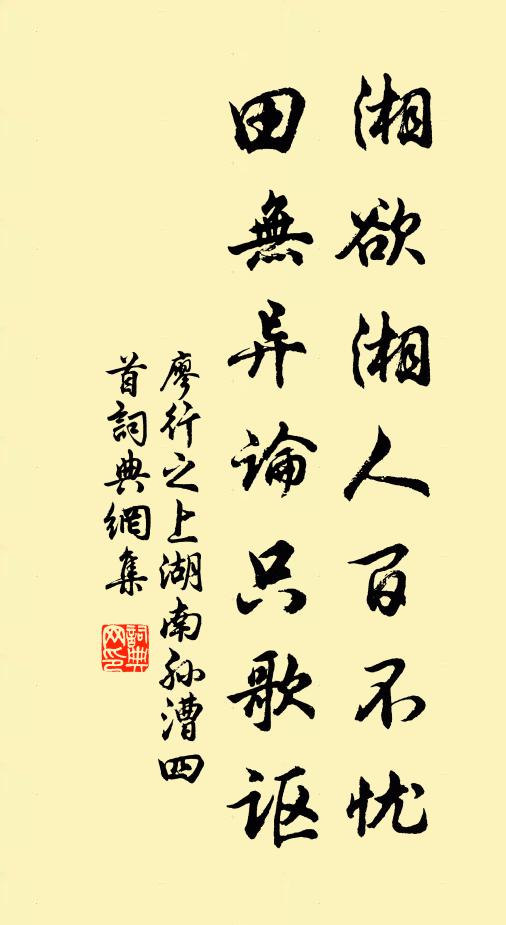 湘欲湘人百不忧
田無异論只歌讴
廖行之上湖南孙漕四
首詞典網集
詞典
网印